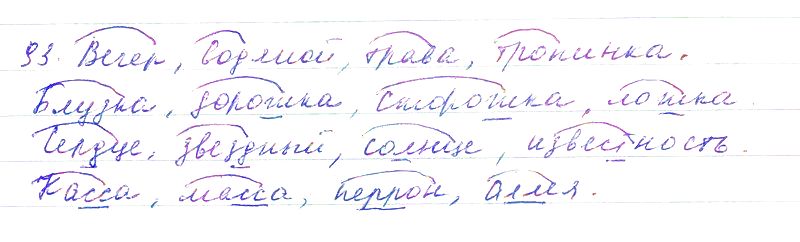 93. Вечер, Водяной, трава, тропинка.
Блузка, дорожка, сторожка, ложка.
Сердце, звездный, солнце, известность.
Касса, масса, перрон, аллея.